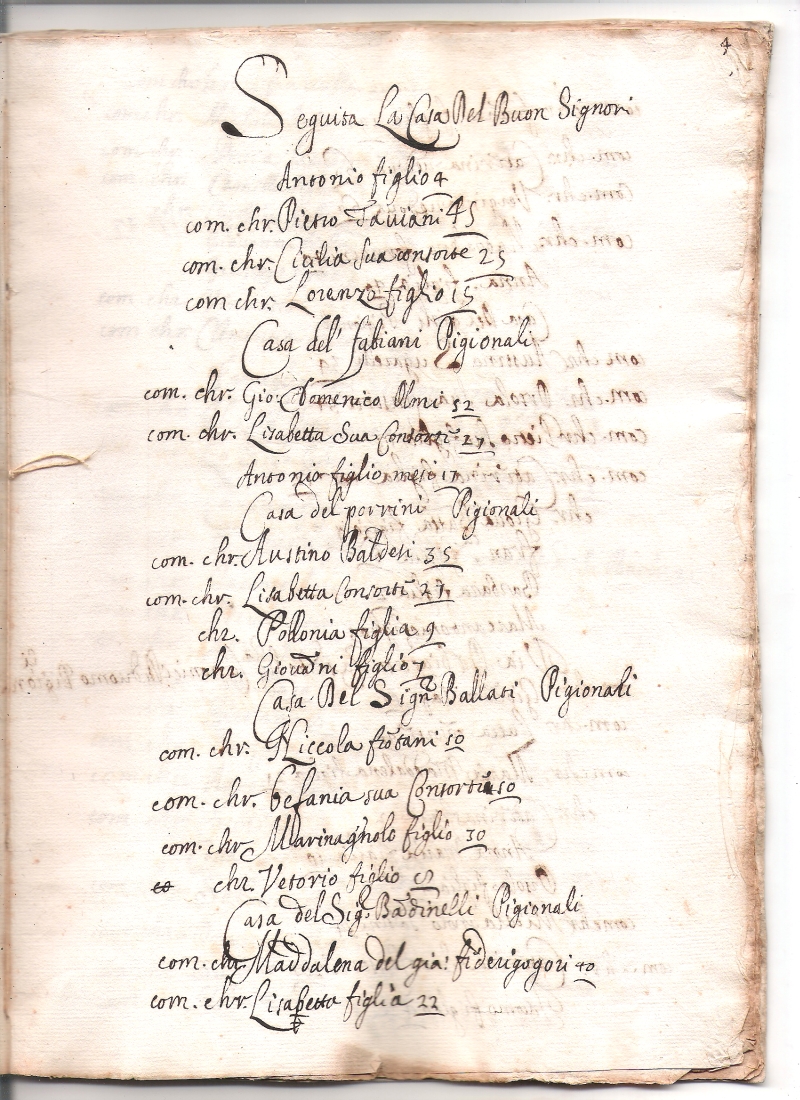 4
Seguita La Casa Del Buon Signori
Antonio figlio 4
com. chr. Pietro Taviani 45
com. chr. Cicilia sua consorte 25
com chr. Lorenzo figlio 15
Casa del' fabiani Pigionali
com. chr. Gio: Domenico Olmi 52
com. chr. Lisabetta Sua Consorte 27
Antonio figlio mese 17
Casa del porrini Pigionali
com. chr. Austino Baldesi 35
com. chr. Lisabetta Consorte 27
chr. Pollonia figlia 9
chr. Giovanni figlio 7
Casa Del Sign. Ballati Pigionali
com. chr. Niccola 50
com. chr. Befania sua Consorte 50
com. chr Marinagnolo figlio 30
chr. Vetorio figlio
Casa del Sig. Bandinelli Pigionali
com. chr. Maddalena del gia: fiderigo gori 40
com. chr. Lisabetta figlia 22